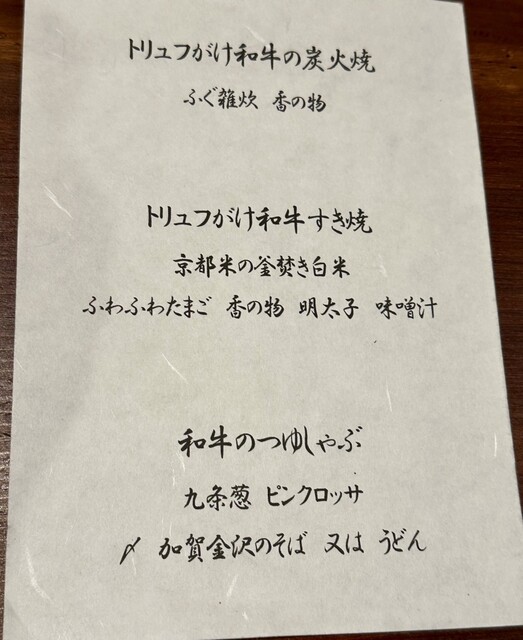 トリュフがけ和牛の炭火焼
ふぐ雑炊 香の物
トリュフがけ和牛すき焼
京都米の釜焚き白米
ふわふわたまご 香の物 明太子 味噌汁
和牛のつゆしゃぶ
九条葱 ピンクロッサ
〆 加賀金沢のそば 又は うどん